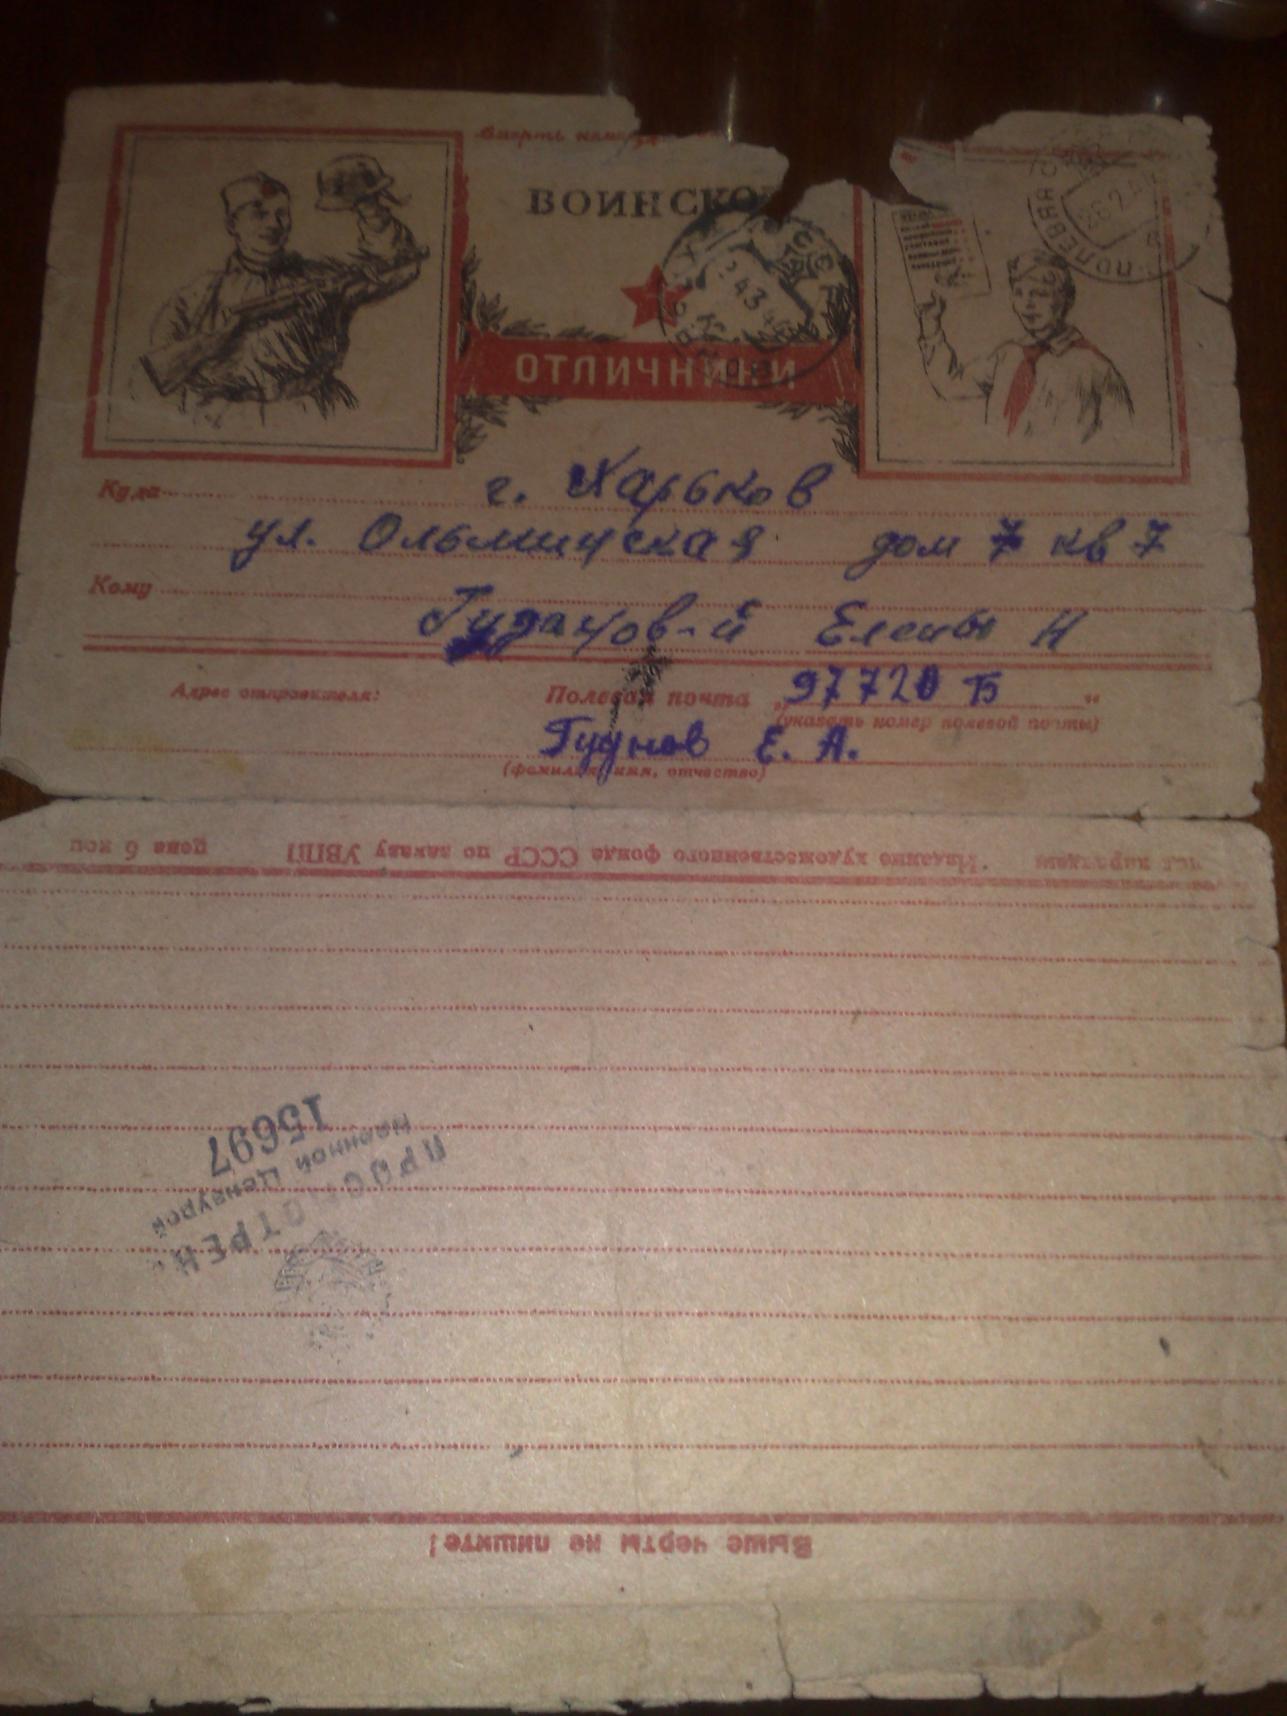 Смерть
ВОИНСКО
ОТЛИЧНИКИ
ПОЛЕВАЯ
Куда
г. Харьков
ул. Ольминская дом 7 кв 7
Кому
Елены Н
Адрес отправителя:
Полевая почта „97720 Б“
(указать номер полевой почты)
Е. А.
(фамилия, имя, отчество)
Издание художественного фонда СССР по заказу УВПП цена 6 коп
ПРОСМОТРЕНО
Военной Цензурой
15697
Выше черты не пишите!